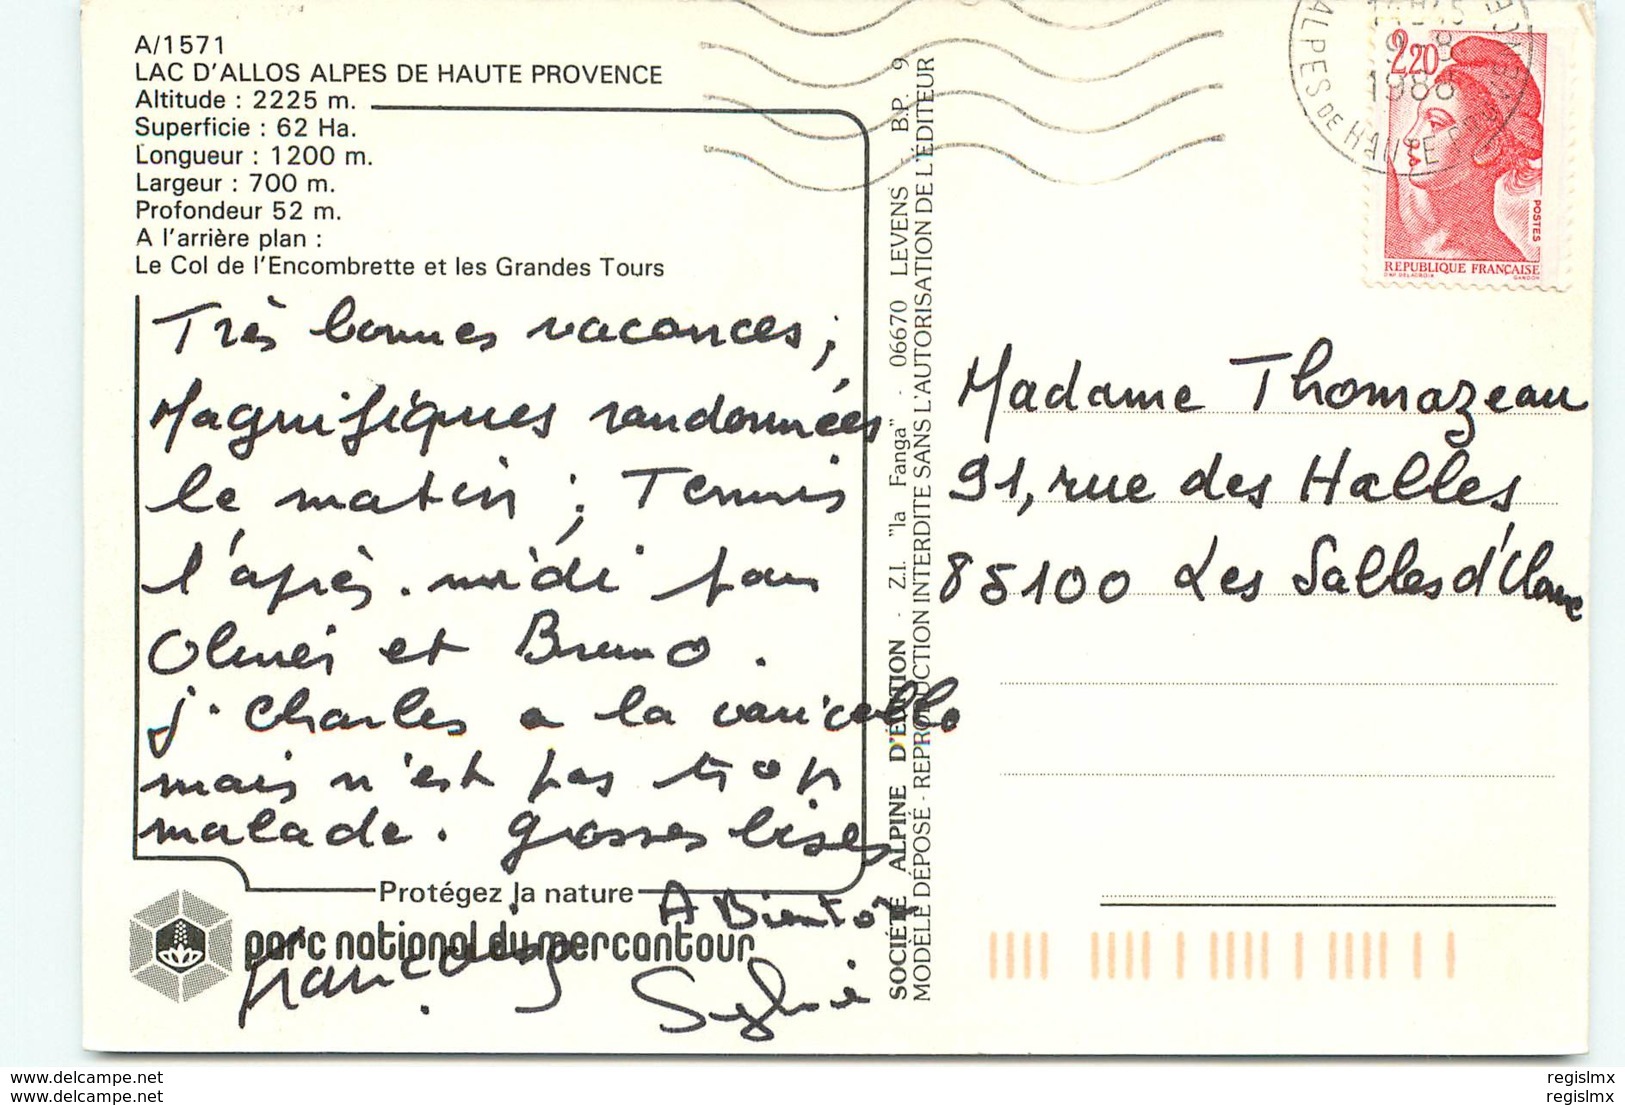 A/1571
LAC D'ALLOS ALPES DE HAUTE PROVENCE
Altitude : 2225 m.
Superficie : 62 Ha.
Longueur : 1200 m.
Largeur : 700 m.
Profondeur 52 m.
A l'arrière plan :
Le Col de l'Encombrette et les Grandes Tours
Très bonnes vacances ;
Magnifiques randonnées
le matin ; Tennis
l'après-midi pour
Olivier et Bruno.
J. Charles a la varicelle
mais n'est pas trop
malade. Grosses bises
A Bientôt
François Sylvie
Protégez la nature
parc national du mercantour
SOCIÉTÉ ALPINE D'ÉDITION - Z.I. "la Fanga" - 06670 LEVENS B.P. 9
MODÈLE DÉPOSÉ - REPRODUCTION INTERDITE SANS L'AUTORISATION DE L'ÉDITEUR
ALPES DE HAUTE
9 8
1988
2,20
POSTES
REPUBLIQUE FRANÇAISE
D'AP. DELACROIX GANDON
Madame Thomazeau
91, rue des Halles
85100 Les Salles d'Olonne
www.delcampe.net
www.delcampe.net
regislmx
regislmx